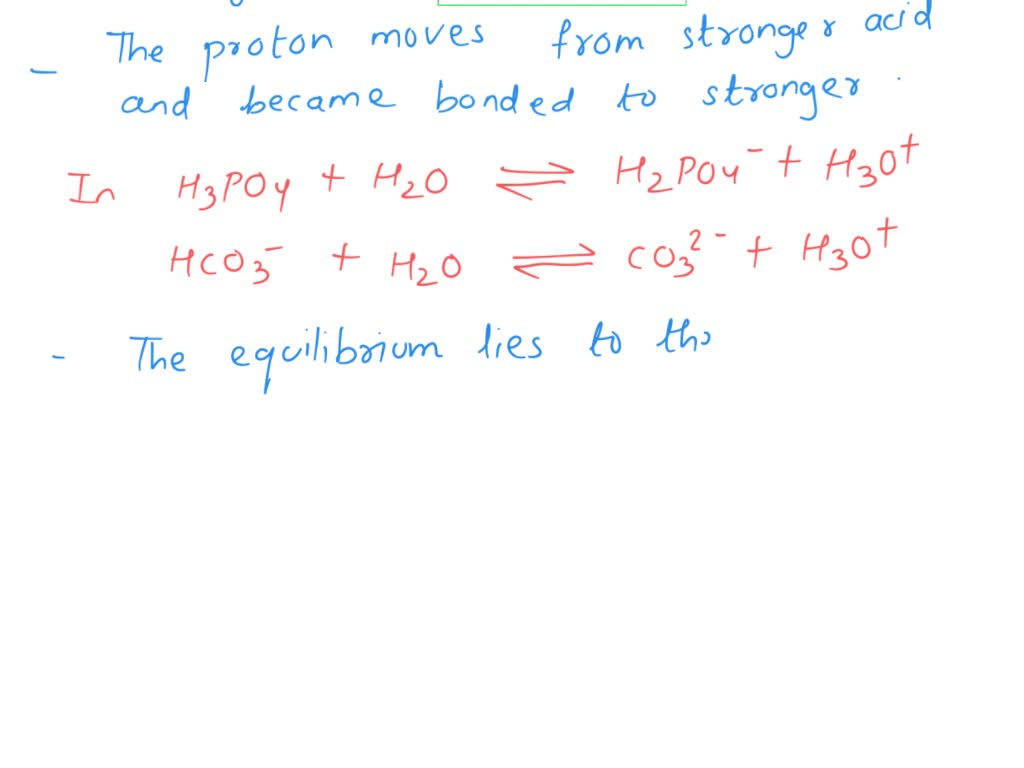 - The proton moves from stronger acid
and became bonded to stronger.
In H₃PO₄ + H₂O ⇌ H₂PO₄⁻ + H₃O⁺
HCO₃⁻ + H₂O ⇌ CO₃²⁻ + H₃O⁺
- The equilibrium lies to